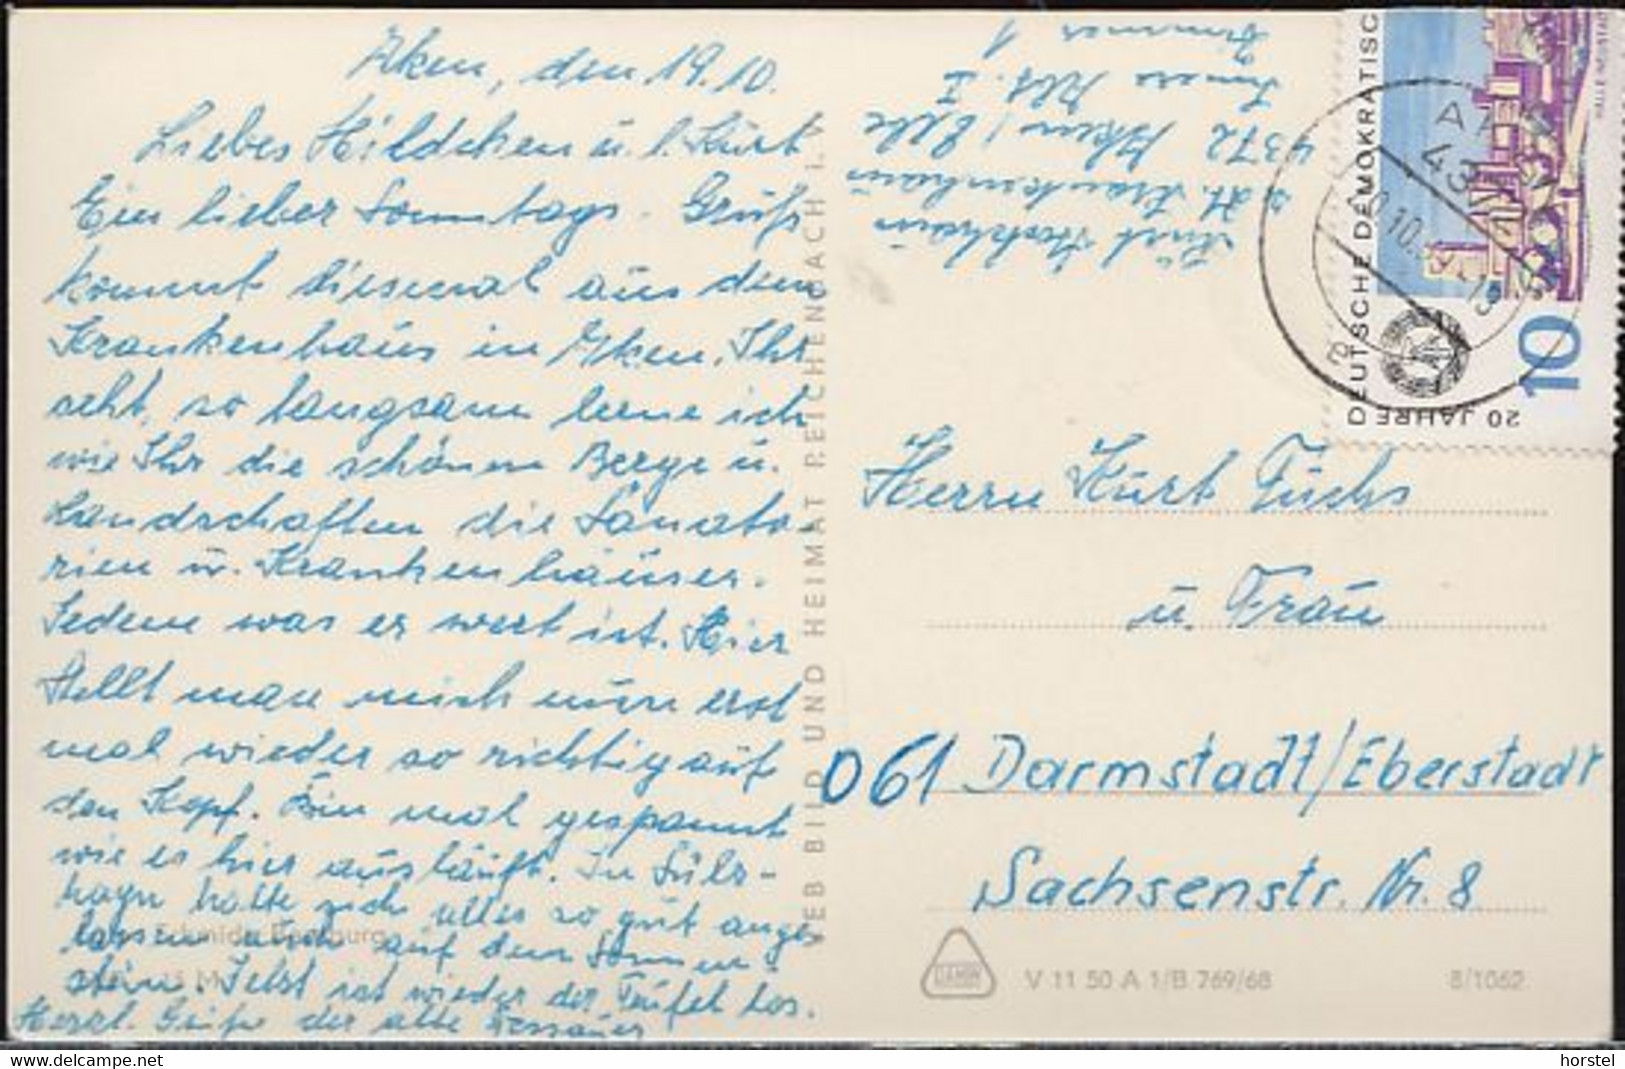 Aken, den 19.10.
Liebes Hildchen u. l. Kurt
Ein lieber Sonntags-Gruß
kommt diesmal aus dem
Krankenhaus in Aken. Ihr
seht, so langsam lerne ich
wie Ihr die schönen Berge u.
Landschaften die Sanato-
rien u. Krankenhäuser.
Jedem was er wert ist. Hier
stellt man mich nun erst
mal wieder so richtig auf
den Kopf. Bin mal gespannt
wie es hier ausläuft. In Sülz-
hayn hatte sich alles so gut ange
lassen und auf dem Sonnen
stein. Jetzt ist wieder der Teufel los.
Herzl. Grüße der alte Dessauer
VEB BILD UND HEIMAT REICHENBACH I. V.
4372 Aken/Elbe
Innere Abt. I
Zimmer 1
z. Zt. Krankenhaus
DEUTSCHE DEMOKRATISC
20 JAHRE
10
Herrn Kurt Fuchs
u. Frau
061 Darmstadt/Eberstadt
Sachsenstr. Nr. 8
V 11 50 A 1/B 769/68
8/1062
horstel
© www.delcampe.net